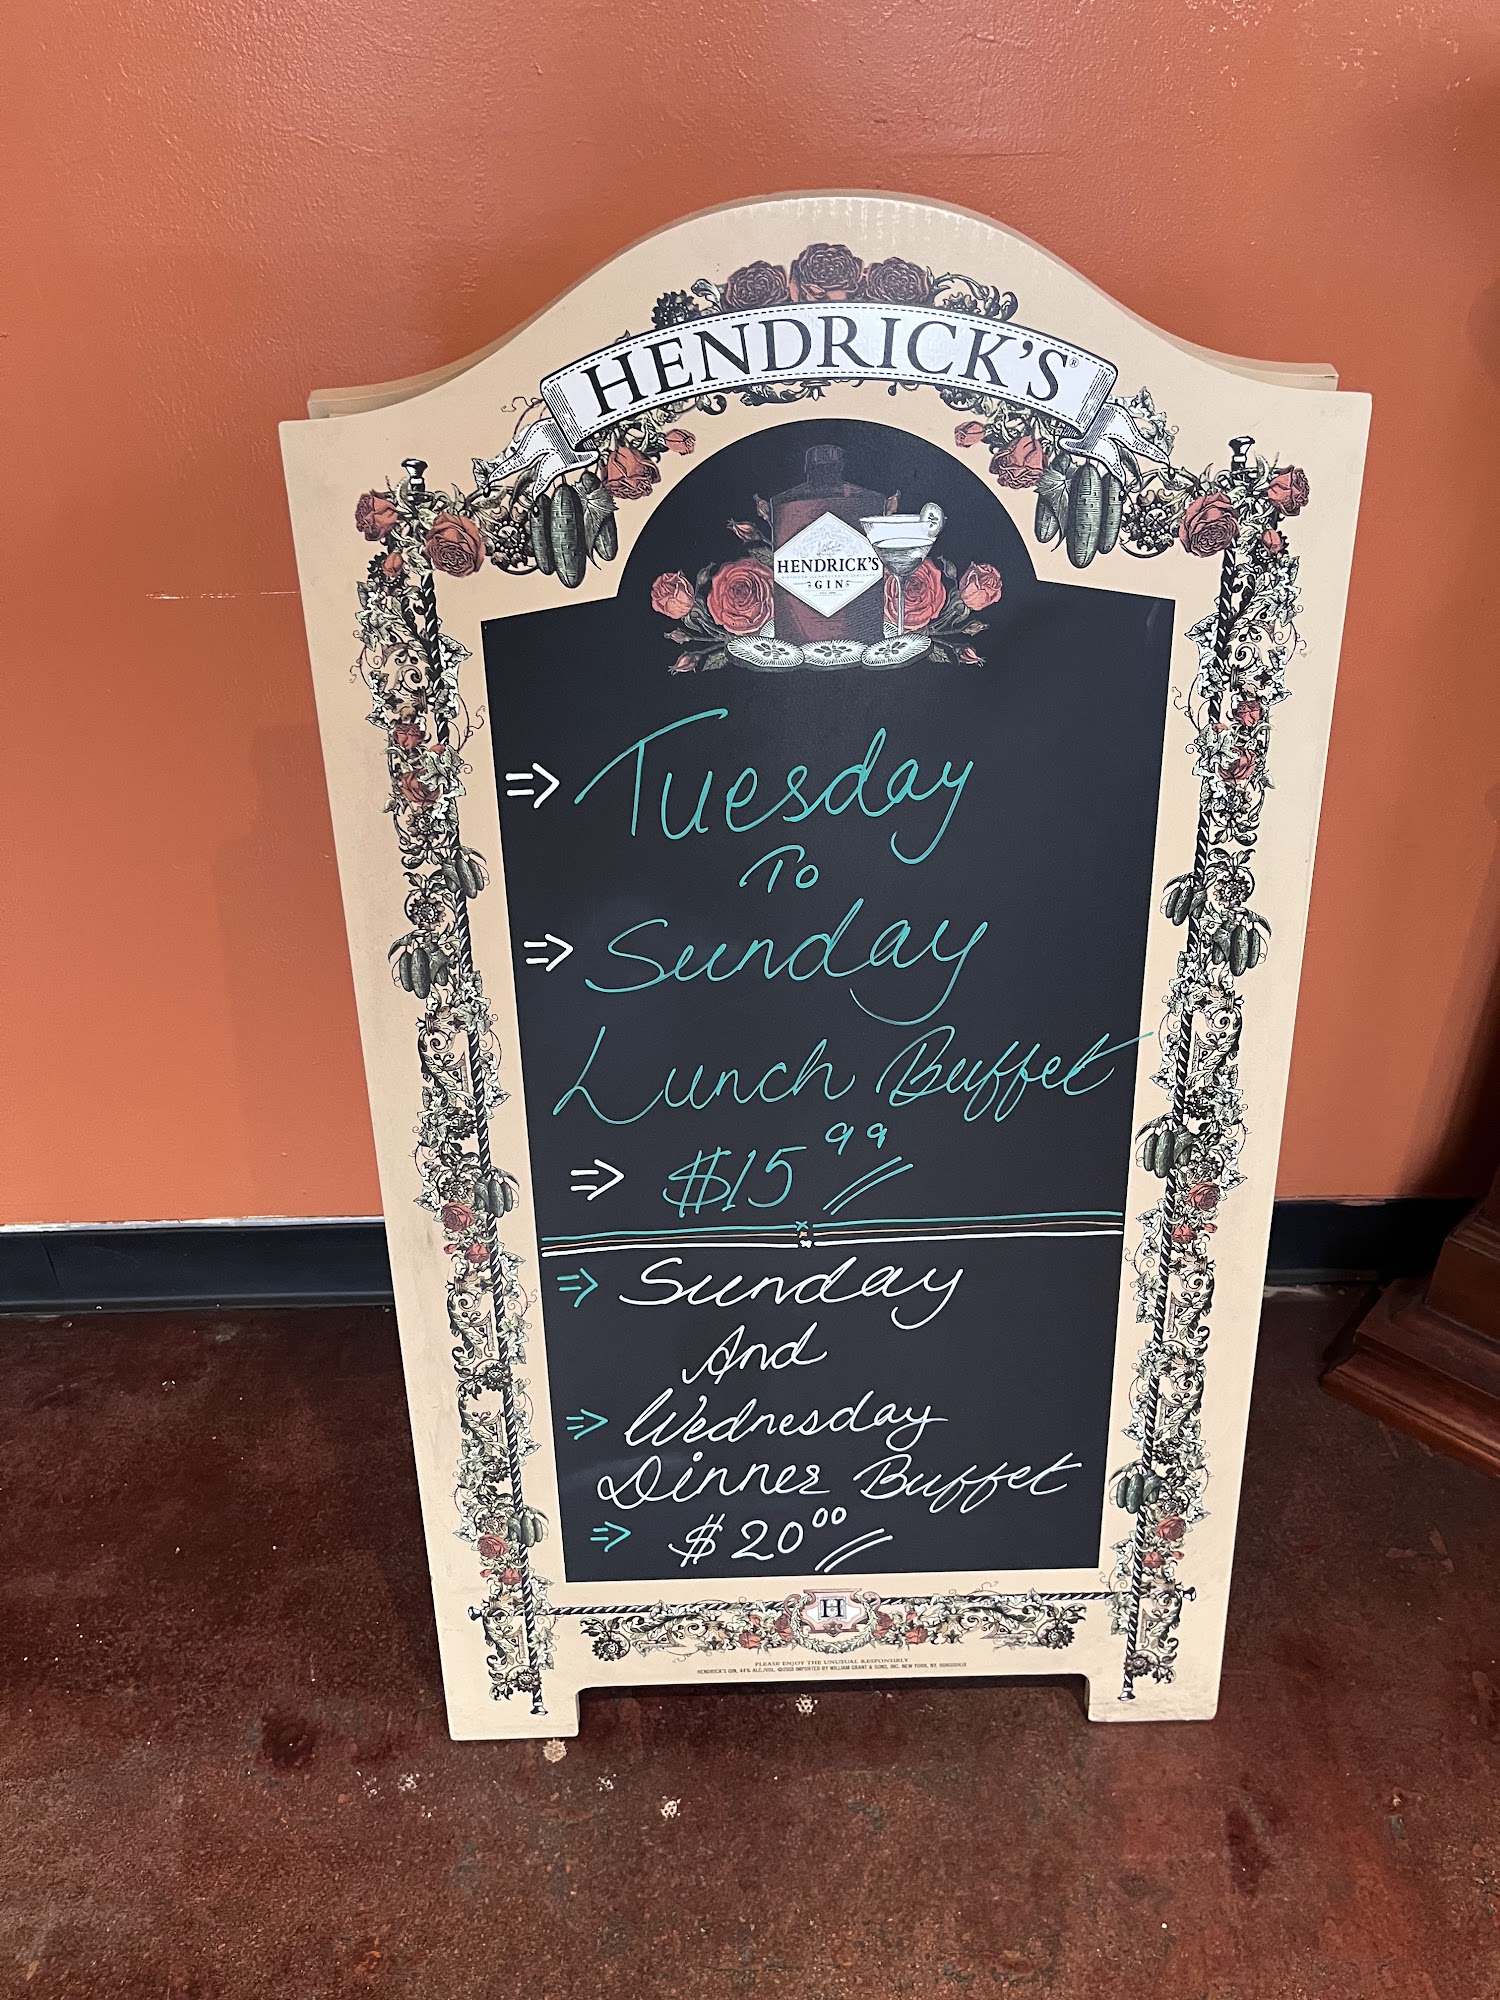 HENDRICK'S®
HENDRICK'S
GIN
⇒ Tuesday
To
⇒ Sunday
Lunch Buffet
⇒ $15 99
⇒ Sunday
And
⇒ Wednesday
Dinner Buffet
⇒ $20 00
H
PLEASE ENJOY THE UNUSUAL RESPONSIBLY
HENDRICK'S GIN, 44% ALC./VOL. ©2008 IMPORTED BY WILLIAM GRANT & SONS, INC. NEW YORK, NY.